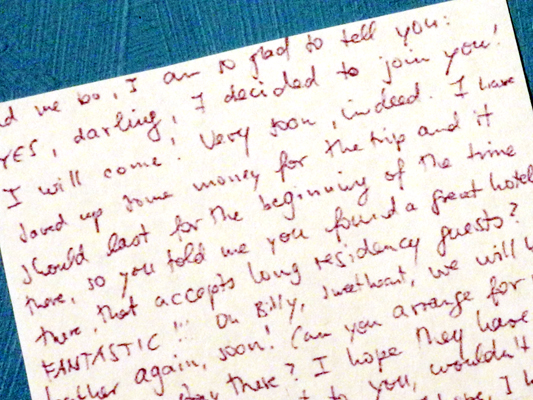 d me so, I am so glad to tell you:
YES, darling, I decided to join you!
I will come! Very soon, indeed. I have
saved up some money for the trip and it
should last for the beginning of the time
there, so you told me you found a great hotel
there, that accepts long residency guests?
FANTASTIC!!! Oh Billy, sweetheart, we will
together again, soon! Can you arrange for
stay there? I hope they have
to you, wouldn't
hope, I